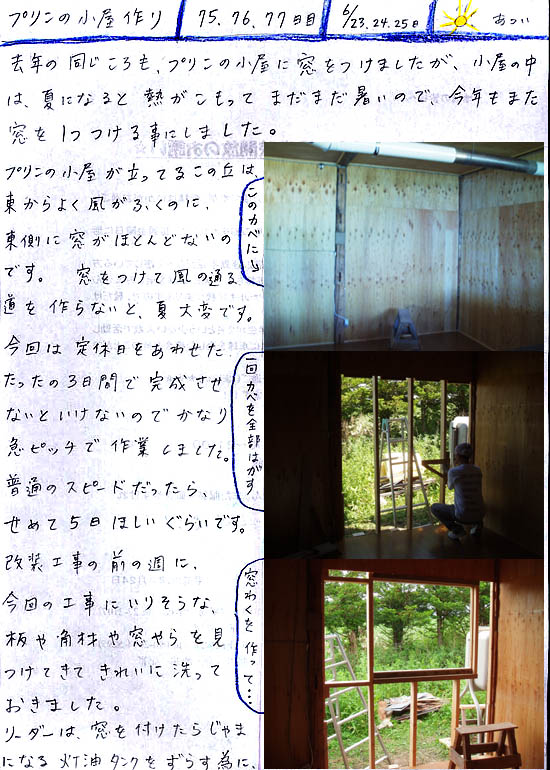 プリンの小屋作り
75.76.77日目
6/23.24.25日
あつい
去年の同じころも、プリンの小屋に窓をつけましたが、小屋の中
は、夏になると熱がこもってまだまだ暑いので、今年もまた
窓を1つつける事にしました。
プリンの小屋が立ってるこの丘は
東からよく風がふくのに、
東側に窓がほとんどないの
です。 窓をつけて風の通る
道を作らないと、夏大変です。
今回は定休日をあわせた、
たったの3日間で完成させ
ないといけないのでかなり
急ピッチで作業しました。
普通のスピードだったら、
せめて5日ほしいぐらいです。
改装工事の前の週に、
今回の工事にいりそうな、
板や角材や窓やらを見
つけてきてきれいに洗って
おきました。
リーダーは、窓を付けたらじゃま
になる灯油タンクをずらす為に、
このカベに↓
一回カベを全部はがす
窓わくを作って…